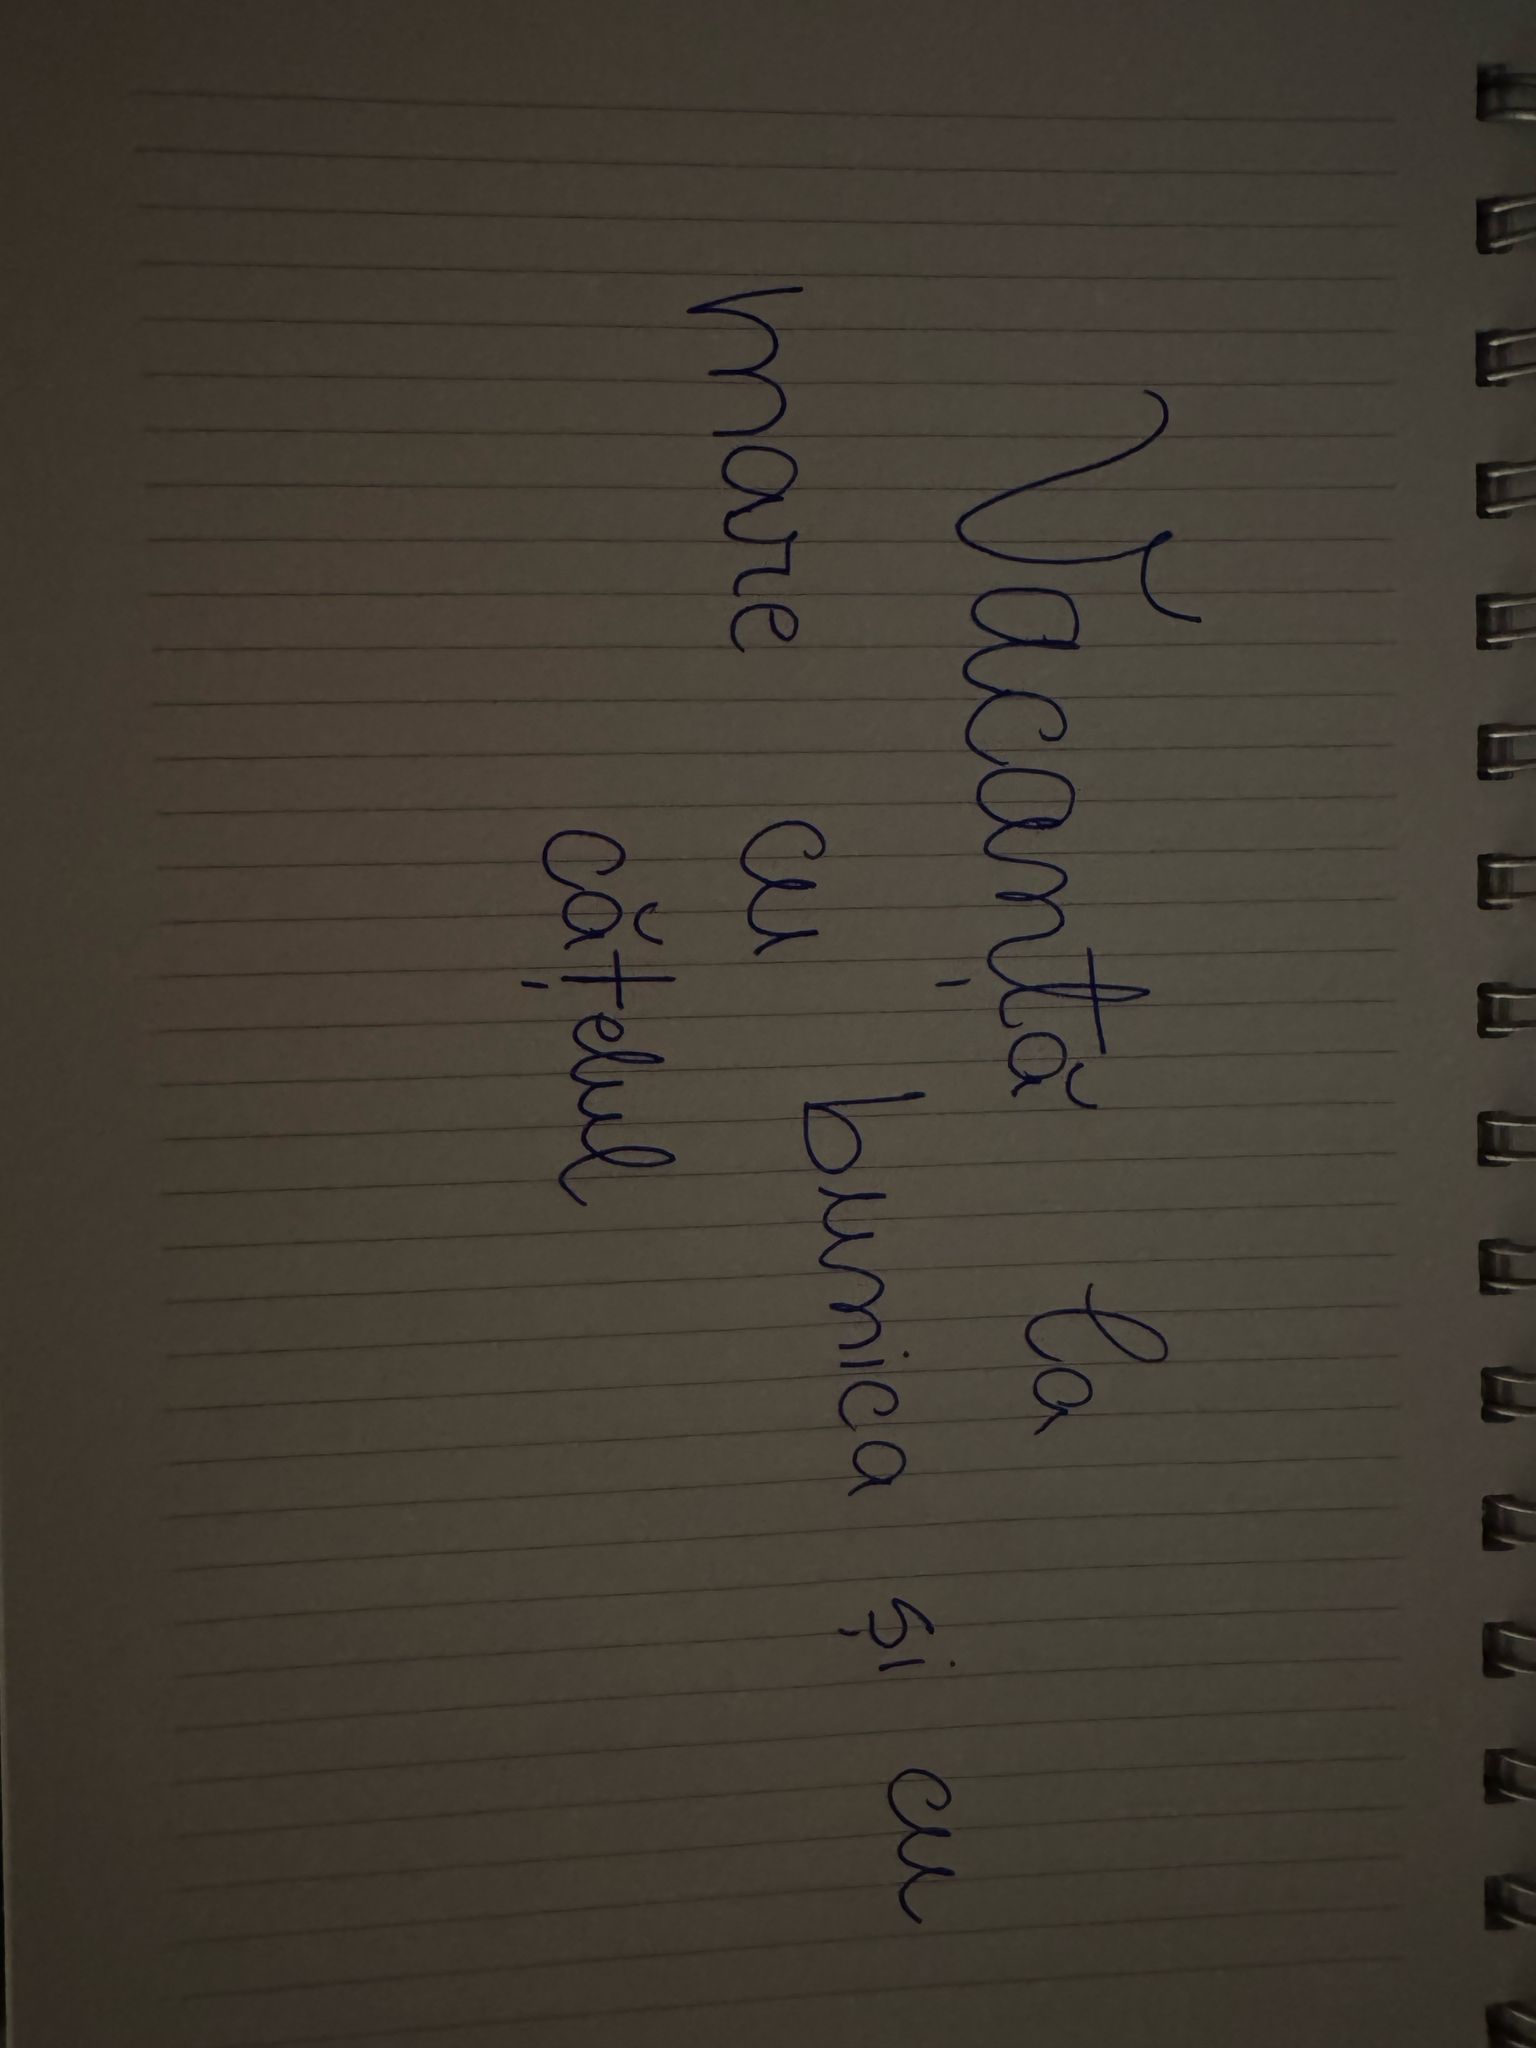 Vacanță la
mare cu bunica și cu
cățelul